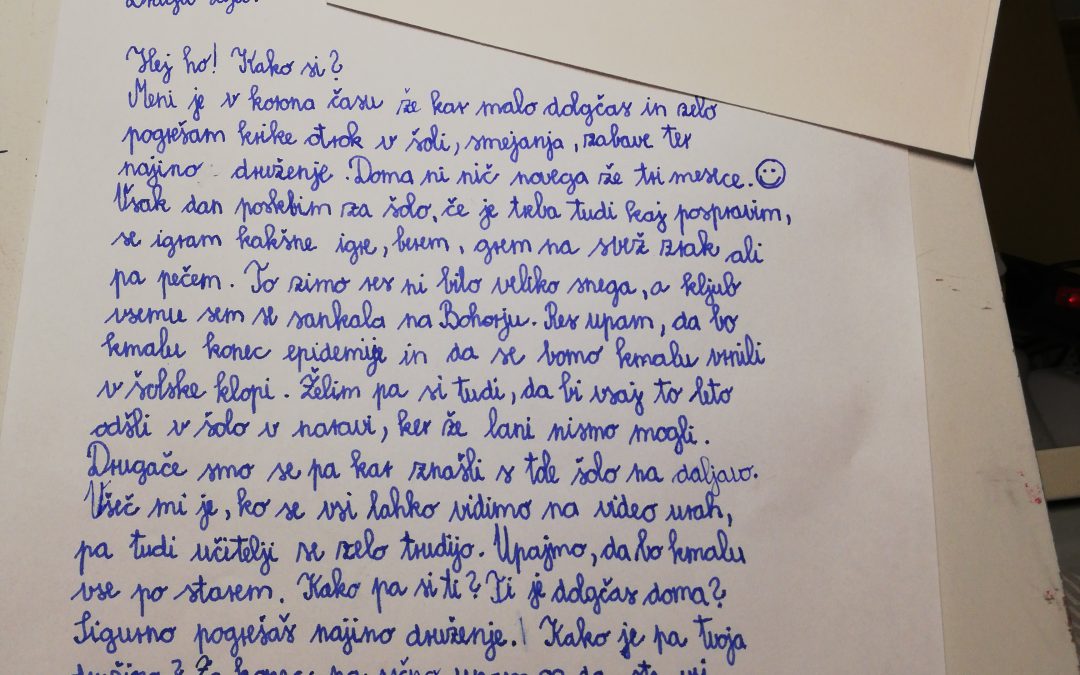 Draga
Hej ho! Kako si?
Meni je v korona času že kar malo dolgčas in zelo
pogrešam krike otrok v šoli, smejanja, zabave ter
najino druženje. Doma ni nič novega že tri mesece. ☺
Vsak dan poskbim za šolo, če je treba tudi kaj pospravim,
se igram kakšne igre, berem, grem na svež zrak ali
pa pečem. To zimo res ni bilo veliko snega, a kljub
vsemu sem se sankala na Bohorju. Res upam, da bo
kmalu konec epidemije in da se bomo kmalu vrnili
v šolske klopi. Želim pa si tudi, da bi vsaj to leto
odšli v šolo v naravi, ker že lani nismo mogli.
Drugače smo se pa kar znašli s tole šolo na daljavo.
Všeč mi je, ko se vsi lahko vidimo na video urah,
pa tudi učitelji se zelo trudijo. Upajmo, da bo kmalu
vse po starem. Kako pa si ti? Ti je dolgčas doma?
Sigurno pogrešaš najino druženje. Kako je pa tvoja
družina? Za konec pa srčno upam da ste vsi